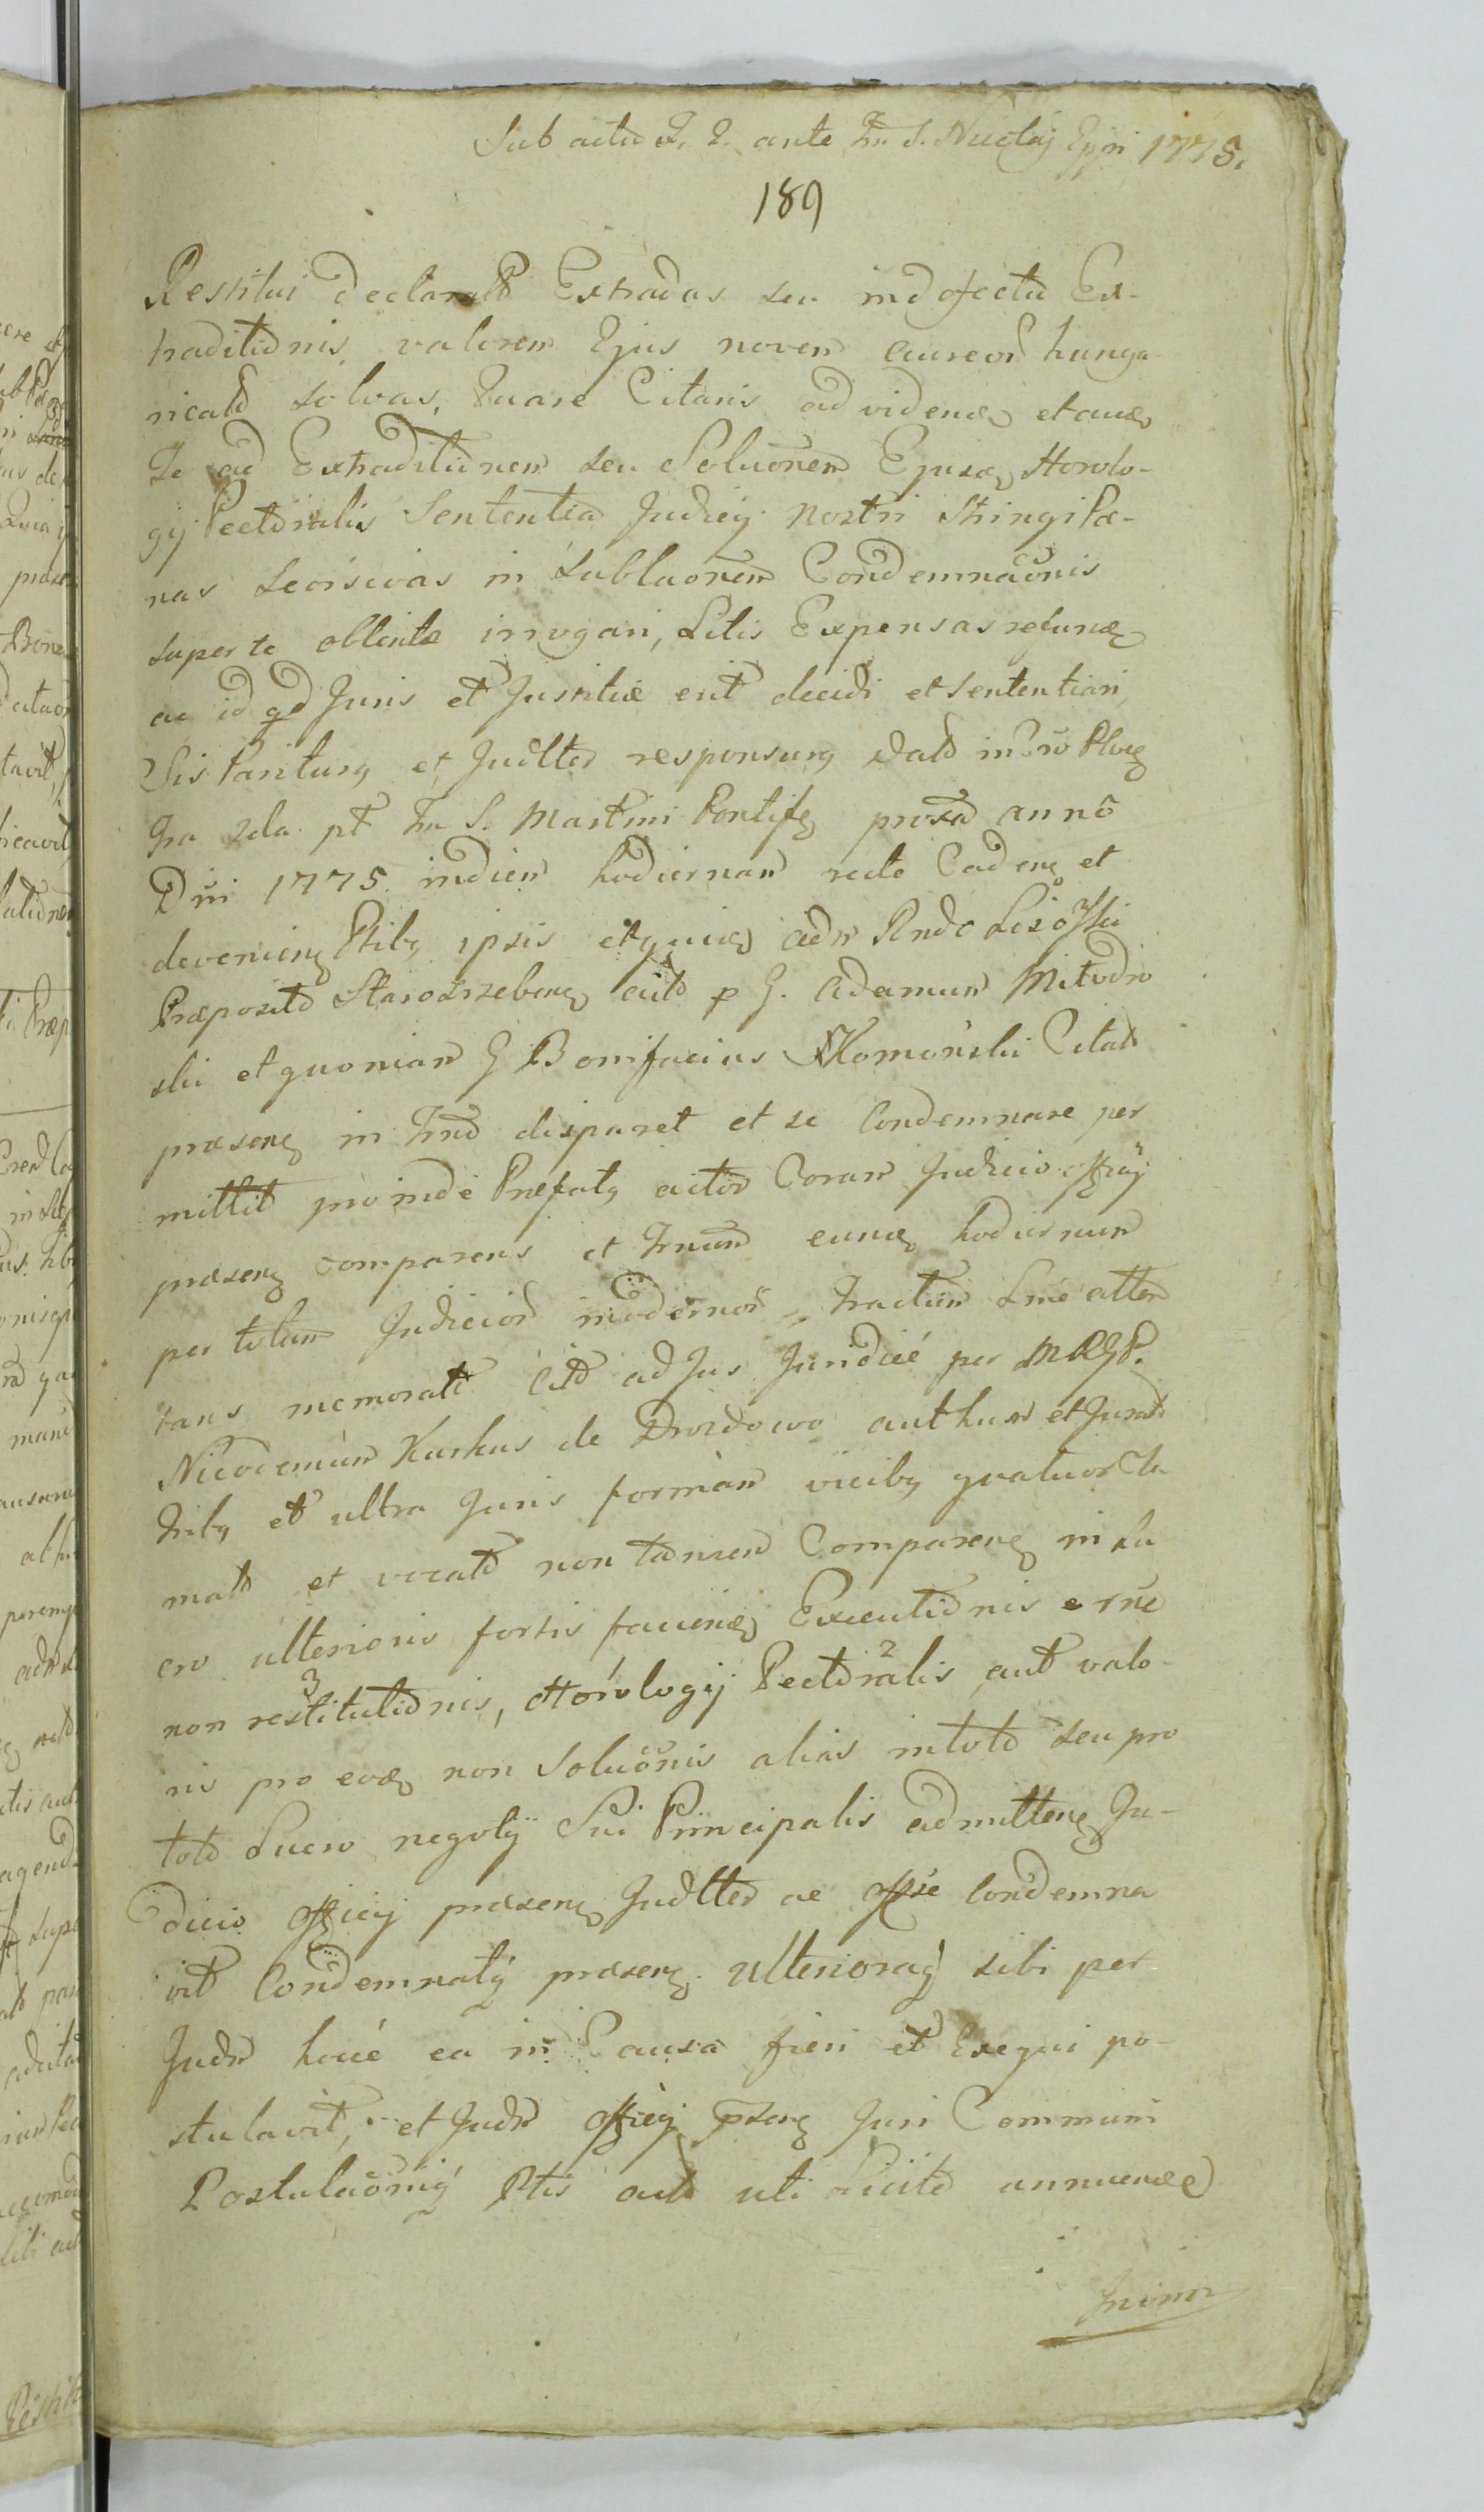 Sub actu F. 2. ante Fm S. Nicolaj Eppi 1775.
189
Restitui declarat Extradas seu indefectu Ex-
traditionis valorem Ejus novem aureor hunga
rical solvas, Quare Citaris ad videnđ et auđ
Te ad Extraditionem seu Soluonem Ejusđ Horolo-
gij Pectoralis Sententia Judicij nostri Stringi Pæ-
nas Leoisivas in Subluonem Condemnaonis
super te obtentæ irrogari, Litis Expensas refunđ
ac id qd Juris et Justitiæ erit decidi et sententiari,
Sis Pariturg et Judlter responsurg Dat in Cro Ploc
fra 2da pt Fm S. Martini Pontife proxa anno
Dni 1775 indiem hodiernam recte Cadenc et
devenienc Ptibg ipsis
Præposito Starozrzebenc act p G. Adamum Mitodro
ski et quoniam G Bonifacius Słomoński Citat
præsenc in Fno disparet et se Condemnare per
mittit proinde Præfatg actor Coram Judicio officij
præsenc comparens et Frnum eunđ hodiernum
per totum Judicior modernor tractum Sme atten
tans memorat Cit ad Jus Juridicé per MRGP.
Nicodemum Kurkus de Drozdowo authum et Jurat
tribg et ultra Juris formam vicibg quatuor Cla
mat et vocat non tamen Comparenc in Lu
cro ulterioris fortis faciendj Executionis e rne
non restitutionis, Horologij Pectoralis aut valo-
3 2
ris pro eođ non Soluonis alias intoto seu pro
toto Lucro negotij Sui Principalis admittenc Ju-
dicio officij præsenc Judlter ac offse Condemna
vit Condemnatg præsenc ulterioraq sibi per
Judm hocce ea in Causa fieri et Exequi po-
stulavit, et Judm officij psenc Juri Communi
Postulaoniq Ptis act uti licite annuenđ